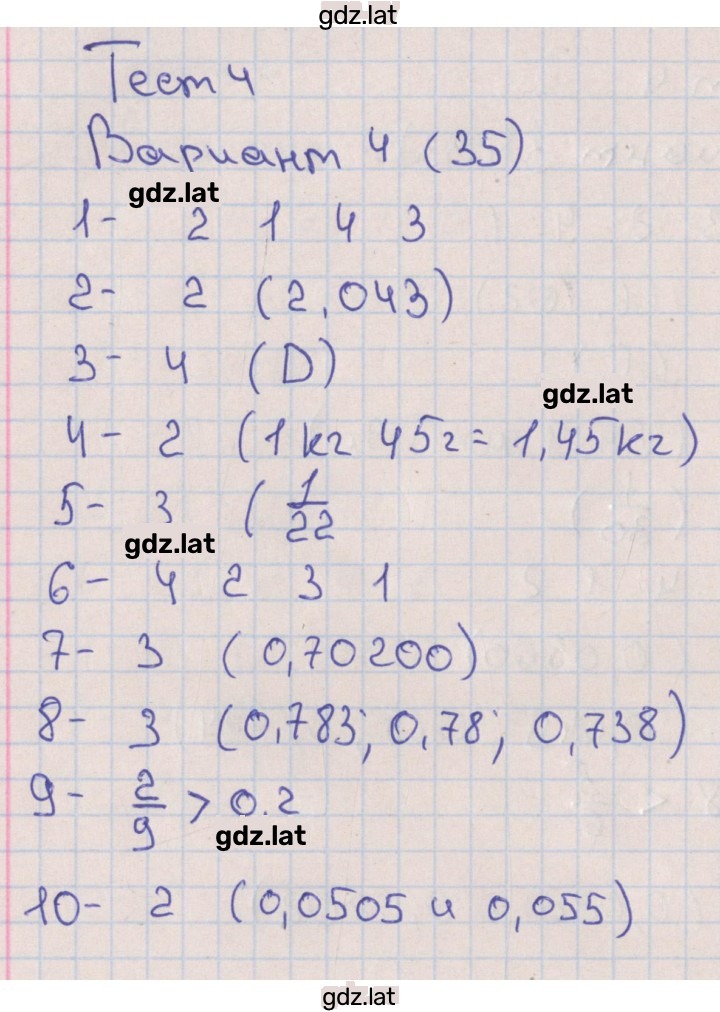 gdz.lat
Тест 4
Вариант 4 (35)
gdz.lat
1- 2 1 4 3
2- 2 (2,043)
3- 4 (D)
gdz.lat
4- 2 (1кг 45г = 1,45кг)
5- 3 (1/22
gdz.lat
6- 4 2 3 1
7- 3 (0,70200)
8- 3 (0,783; 0,78; 0,738)
9- 2/9 > 0.2
gdz.lat
10- 2 (0,0505 и 0,055)
gdz.lat